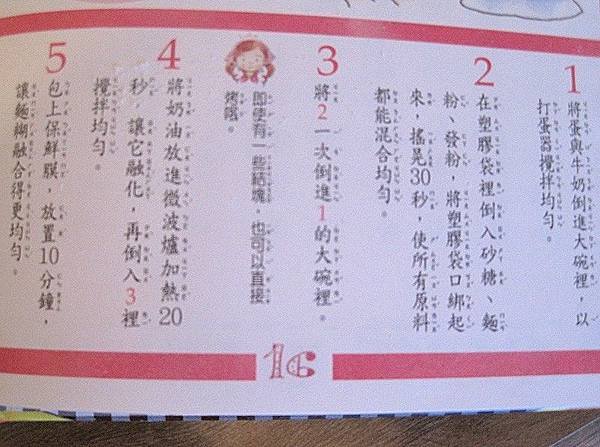 1
將蛋與牛奶倒進大碗裡，以
打蛋器攪拌均勻。
2
在塑膠袋裡倒入砂糖、麵
粉、發粉，將塑膠袋口綁起
來，搖晃30秒，使所有原料
都能混合均勻。
3
將2一次倒進1的大碗裡。
即使有一些結塊，也可以直接
烤哦。
4
將奶油放進微波爐加熱20
秒，讓它融化，再倒入3裡
攪拌均勻。
5
包上保鮮膜，放置10分鐘，
讓麵糊融合得更均勻。
16